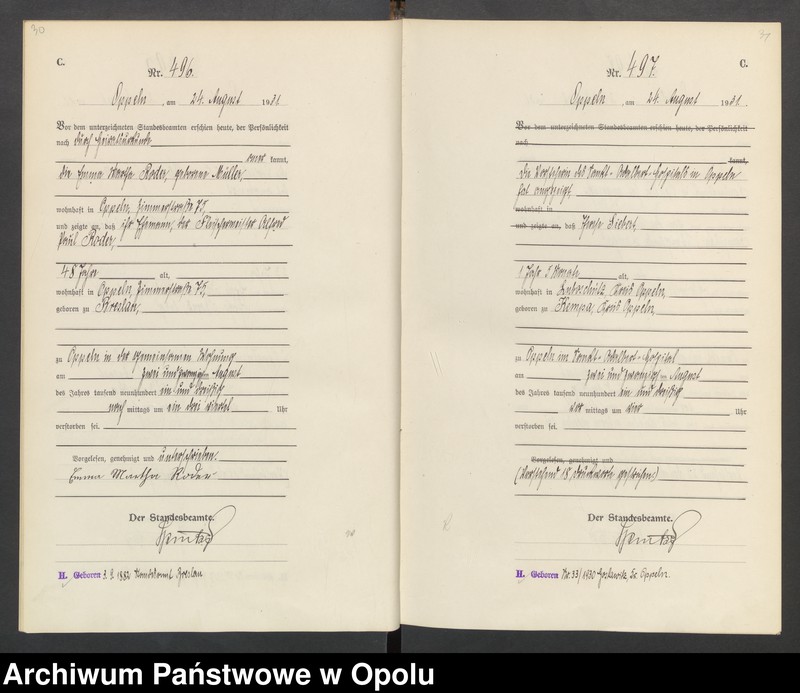 30
C.
Nr. 496.
Oppeln, am 24. August 1931
Vor dem unterzeichneten Standesbeamten erschien heute, der Persönlichkeit
nach durch
kannt,
die Emma Martha Roder, geborene Müller,
wohnhaft in Oppeln, Zimmerstraße 75,
und zeigte an, daß ihr Ehemann, der Fleischermeister Alfred
Paul Roder,
48 Jahre alt,
wohnhaft in Oppeln, Zimmerstraße 75,
geboren zu Breslau,
zu Oppeln in der gemeinsamen Wohnung
am zwei und zwanzigsten August
des Jahres tausend neunhundert ein und dreißig
nach mittags um ein drei viertel Uhr
verstorben sei.
Vorgelesen, genehmigt und unterschrieben.
Emma Martha Roder
Der Standesbeamte.
H. Geboren 3. 1882 Breslau
31
C.
Nr. 497.
Oppeln, am 24. August 1931.
Vor dem unterzeichneten Standesbeamten erschien heute, der Persönlichkeit
nach
kannt,
Die Vorsteherin des Sankt-Adalbert-Hospitals in Oppeln
hat angezeigt,
wohnhaft in
und zeigte an, daß Siebert,
1 Jahr 5 Monate alt,
wohnhaft in Kreis Oppeln,
geboren zu Kempa, Kreis Oppeln,
zu Oppeln im Sankt-Adalbert-Hospital
am zwei und zwanzigsten August
des Jahres tausend neunhundert ein und dreißig
vor mittags um vier Uhr
verstorben sei.
Vorgelesen, genehmigt und
(Vorstehend 18 Druckworte gestrichen)
Der Standesbeamte.
H. Geboren Nr. 33/1930 Oppeln.
Archiwum Państwowe w Opolu